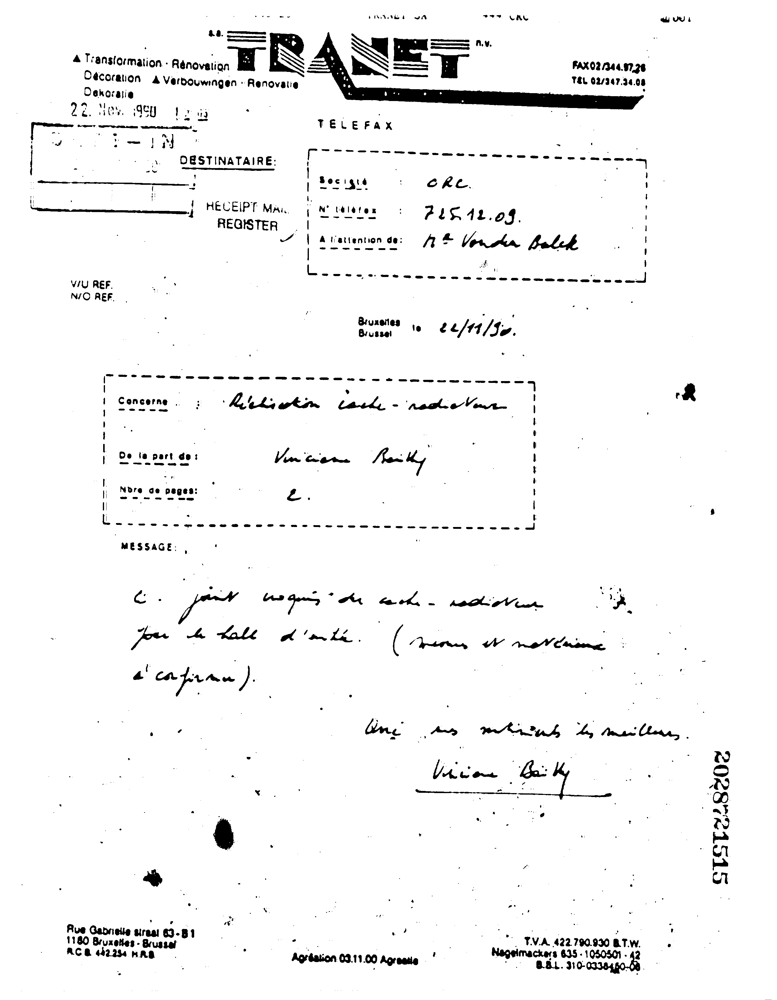 s.a. TRANET n.v.
▲ Transformation - Rénovation
Décoration ▲ Verbouwingen - Renovatie
Dekoratie
FAX 02/344.97.26
TEL 02/347.34.08
22. Nov. 1990
TELEFAX
DESTINATAIRE:
RECEIPT MAIL
REGISTER
Société : CRC.
N° téléfax : 725.12.09.
A l'attention de:
V/U REF.
N/O REF.
Bruxelles
Brussel le 22/11/90.
Concerne : Réalisation cache-radiateur
De la part de: Viviane Bailly
Nbre de pages: 2.
MESSAGE:
C. joint croquis de cache-radiateur
pour le hall d'entrée. (mesures et matériaux
à confirmer).
mes sentiments les meilleurs.
Viviane Bailly
2028721515
Rue Gabrielle straat 63 - B1
1180 Bruxelles - Brussel
R.C.B. 442.254 H.R.B
Agréation 03.11.00 Agreatie
T.V.A. 422.790.930 B.T.W.
Nagelmackers 635 - 1050501 - 42
B.B.L. 310-0338450-06